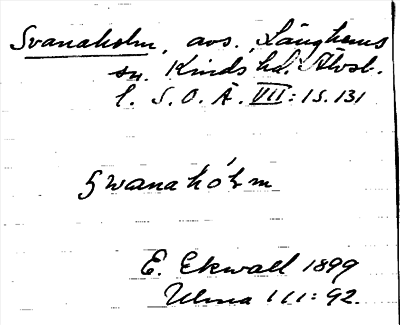 Svanaholm, avs. Länghems
sn. Kinds hd. Älvsb.
l. S.O.Ä. VII: 1 S. 131
Swanahólm
E. Ekwall 1899
Ulma 111: 92.